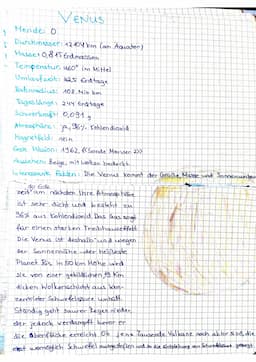 VENUS
Monde: 0
Durchmesser: 12104 km (am Äquator)
Masse: 0,815 Erdmassen
Temperatur: 460° im Mittel
Umlaufzeit: 225 Erdtage
Bahnradius: 108 Mio km
Tageslänge: 244 Erdtage
Schwerkraft: 0,09
Atmosphäre: ja, 96% Kohlendioxid
Magnetfeld: nein
Erste Mission: 1962, (Sonde Mariner 2)
Aussehen: Beige, mit Wolken bedeckt.
Interessante Fakten: Die Venus kommt der Größe, Masse und Sonnenumlauf
der Erde
am nächsten. Ihre Atmosphäre
ist sehr dicht und besteht zu
96% aus Kohlendioxid. Das Gas sorgt
für einen starken Treibhauseffekt.
Die Venus ist deshalb und wegen
der Sonnennähe der heißeste
Planet. Bis in 50 km Höhe wird
sie von einer gelblichen, km
dicken Wolkenschicht aus kon-
zentrierter Schwefelsäure umhüllt.
Ständig geht saurer Regen nieder,
der jedoch verdampft bevor er
die Oberfläche erreicht. Ob jene Tausende Vulkane noch aktiv sind, die
einst womöglich Schwefel ausgestoßen und so die Entstehung von